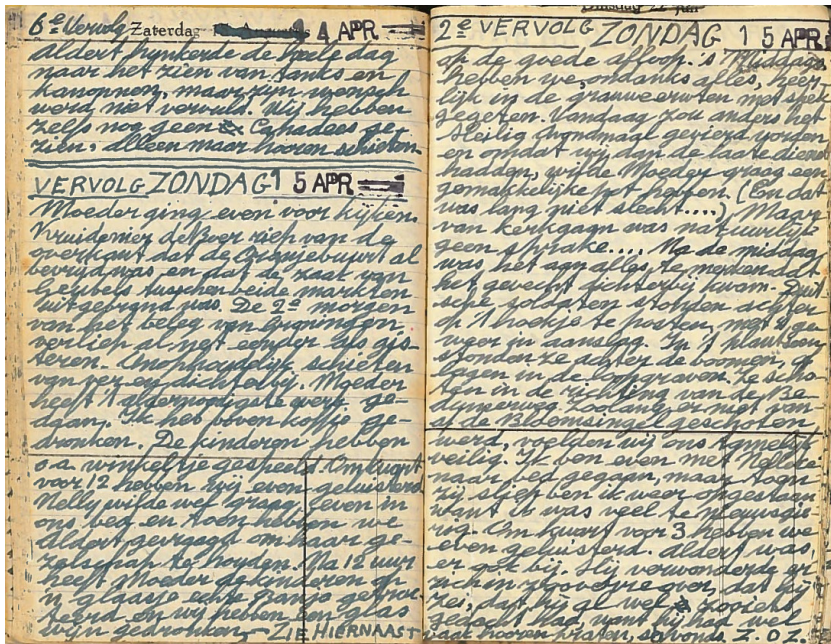 6e Vervolg Zaterdag 14 APR.
Aldert hunkerde de heele dag
naar het zien van tanks en
kanonnen, maar zijn wensch
werd niet vervuld. Wij hebben
zelfs nog geen Canadees ge-
zien, alleen maar hooren schieten.
VERVOLG ZONDAG 15 APR
Moeder ging even voor kijken.
Kruidenier de Boer riep van de
overkant dat de Oranjebuurt al
bevrijd was en dat de zaak van
tusschen beide markten
uitgebrand was. De 2e morgen
van het beleg van Groningen
verliep al net eender als gis-
teren. Onophoudelijk schieten
van ver en dichterbij. Moeder
heeft 't aldernoodigste werk ge-
daan. Ik heb boven koffie ge-
dronken. De kinderen hebben
o.a. winkeltje gespeeld. Om kwart
voor 12 hebben wij even geluisterd.
Nelly wilde wel graag even in
ons bed en toen hebben we
Aldert gevraagd om haar ge-
zelschap te houden. Na 12 uur
heeft Moeder de kinderen op
'n glaasje
en wij hebben een glas
wijn gedronken. ZIE HIERNAAST
2e VERVOLG ZONDAG 15 APR.
op de goede afloop. 's Middags
hebben we, ondanks alles, heer-
lijk in de grauwe erwten met spek
gegeten. Vandaag zou anders het
Heilig Avondmaal gevierd worden
en omdat wij dan de laate dienst
hadden, wilde Moeder graag een
gemakkelijke pot hebben. (En dat
was lang niet slecht....) Maar
van kerkgaan was natuurlijk
geen sprake.... Na de middag
was het aan alles te merken dat
het gevecht dichterbij kwam. Duit-
sche soldaten stonden achter
op 't hoekje te posten, met 't ge-
weer in aanslag. In 't plantsoen
stonden ze achter de boomen, of
lagen in de loopgraven. Ze scho-
ten in de richting van de Be-
dumerweg. Zoolang er niet van
de singel geschoten
werd, voelden wij ons tamelijk
veilig. Ik ben even met Nellie
naar bed gegaan, maar toen
zij sliep ben ik weer opgestaan
want ik was veel te nieuwsgie-
rig. Om kwart voor 3 hebben we
even geluisterd. Aldert was
er ook bij. Hij verwonderde er
zich in zooverre over, dat hij
zei, dat hij al wel zooiets
gedacht had, want hij had wel
eens hooren praten, 's avonds. Z.O.Z.